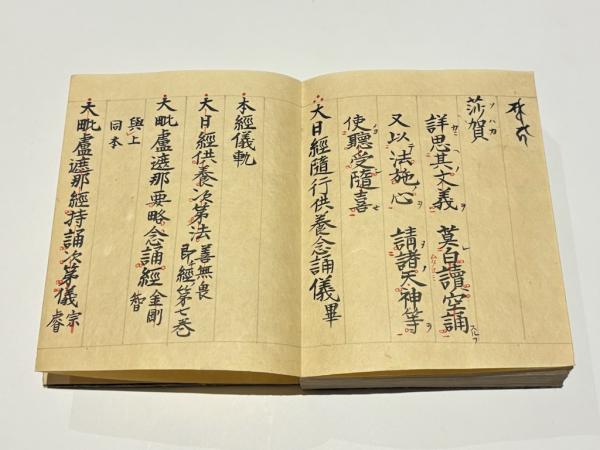 莎賀
詳思其文義 莫白讀空誦
又以法施心 請諸天神等
使聽受隨喜
大日經隨行供養念誦儀畢
本經儀軌
大日經供養次第法 善無畏 即經第七巻
大毗盧遮那要略念誦經 金剛智
與上同本
大毗盧遮那經持誦次第儀 宗睿